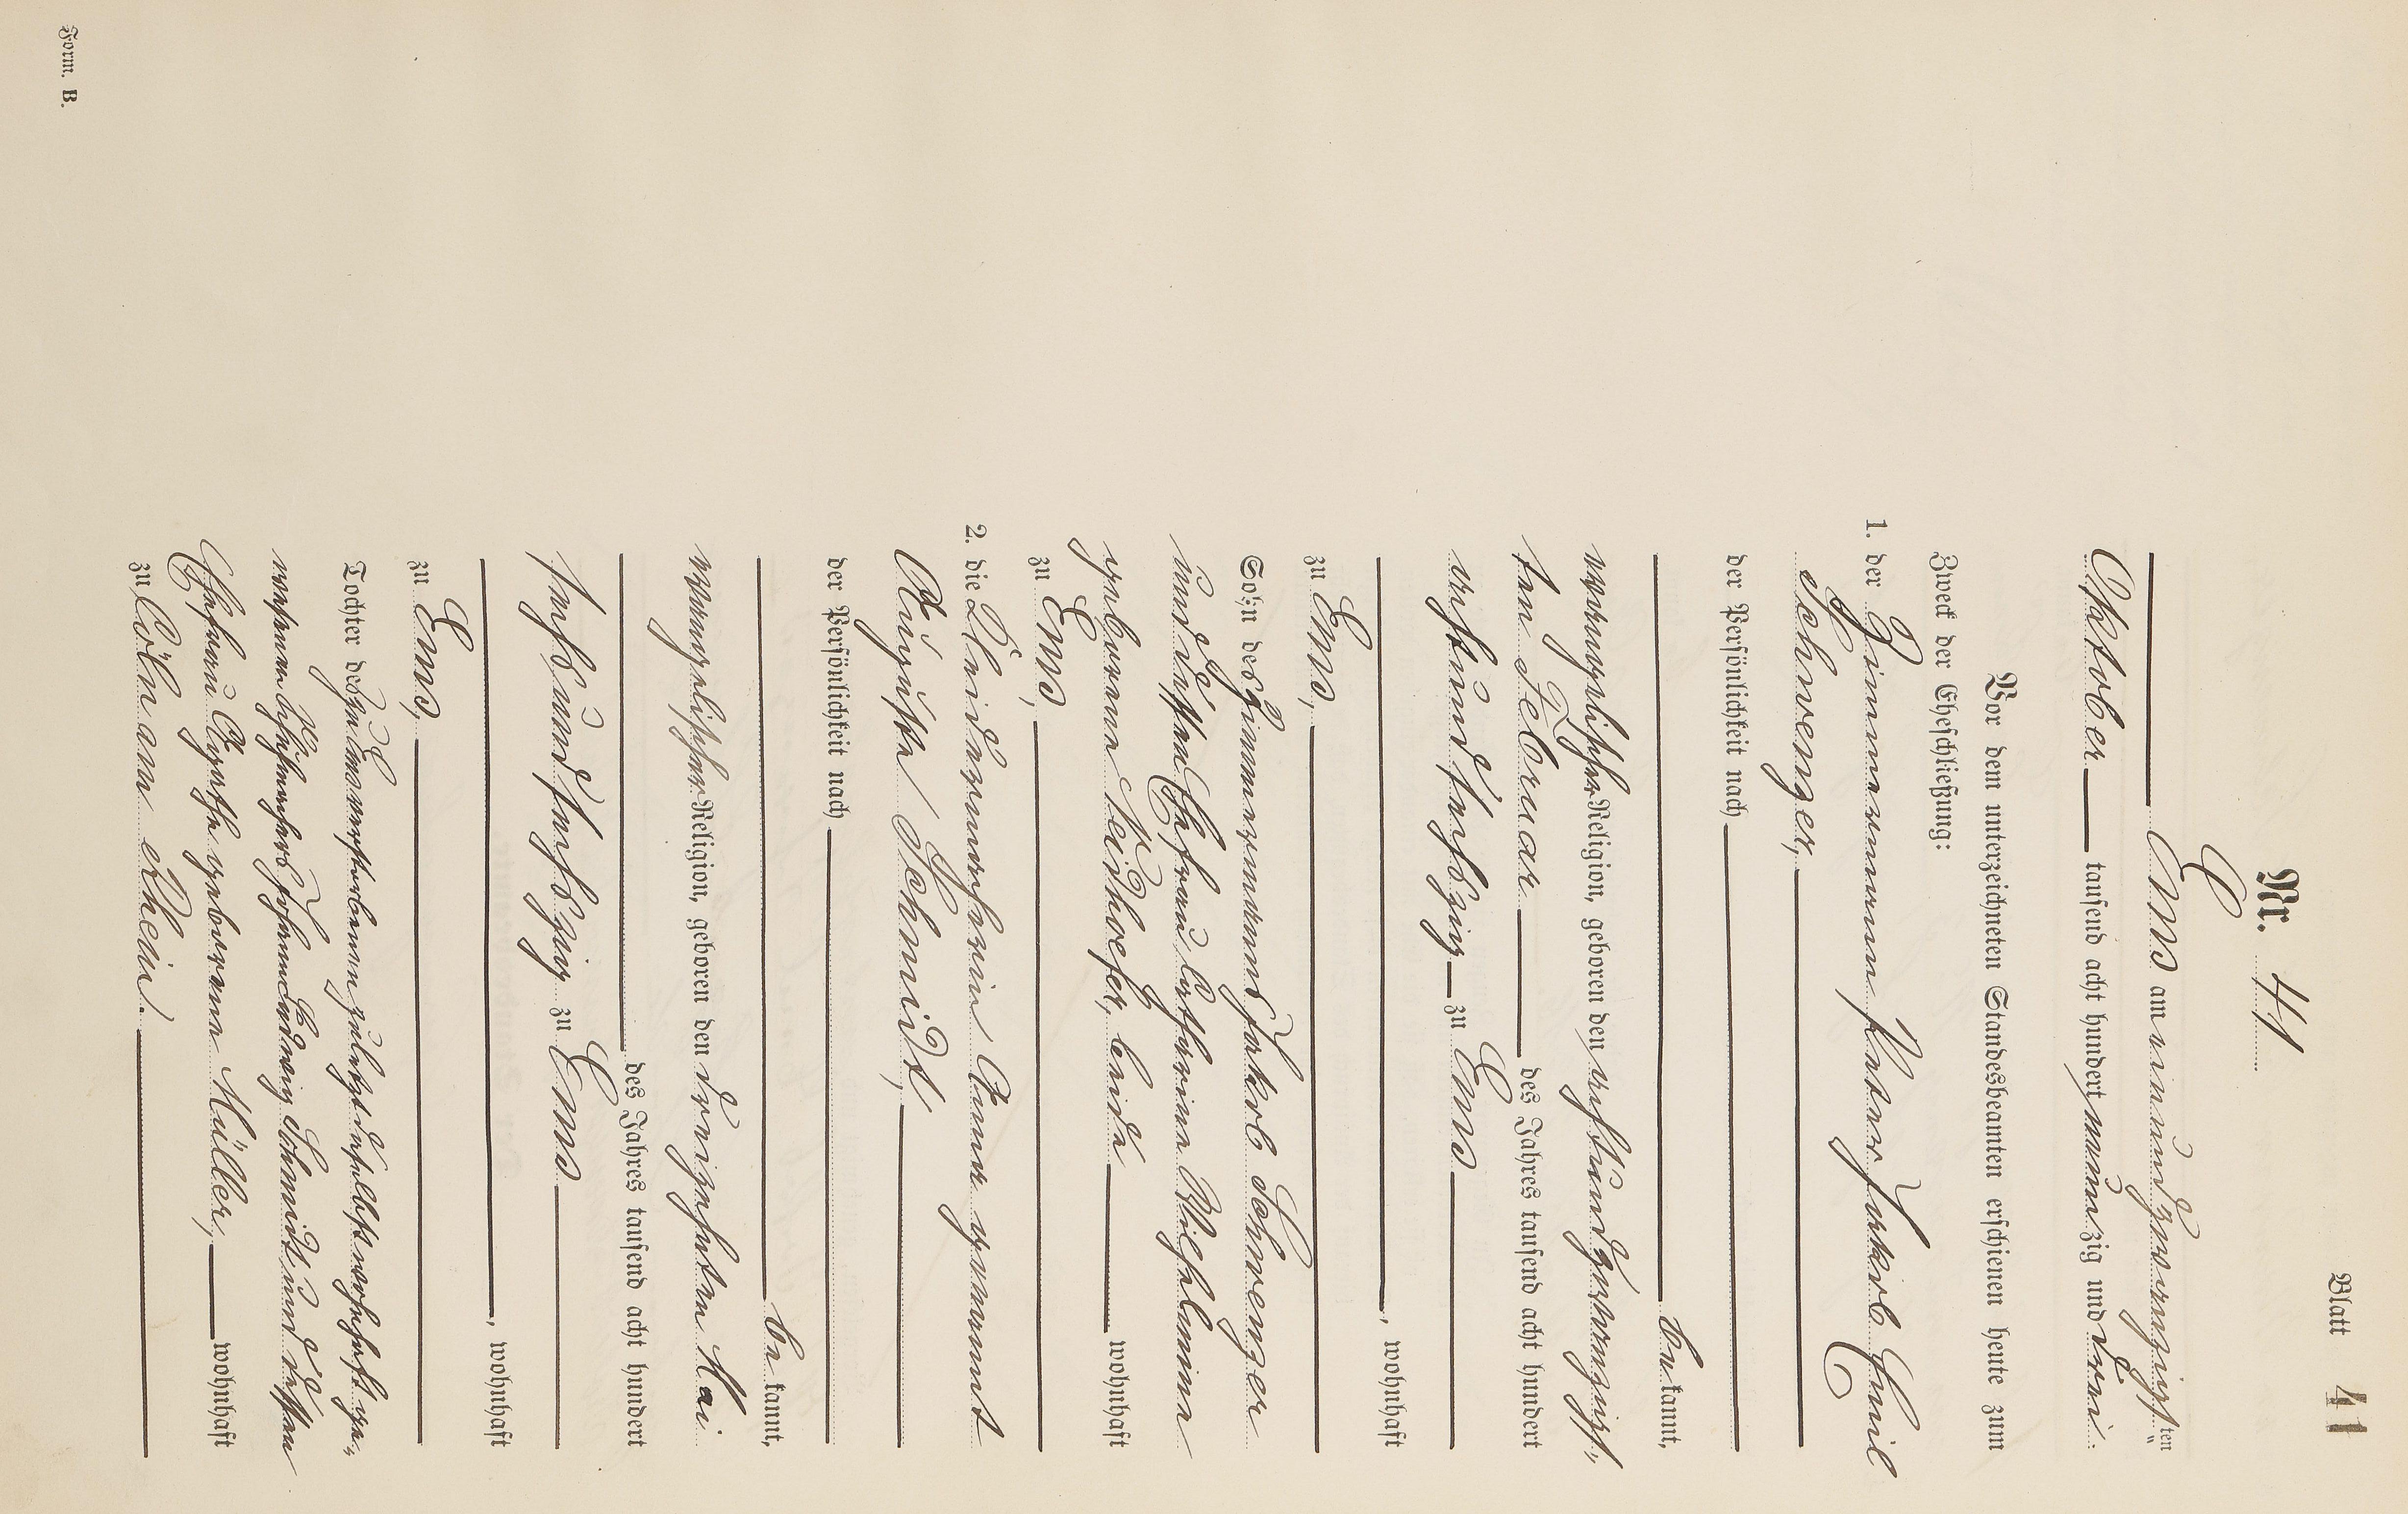 Blatt 41
Nr. 41
Ems am einundzwanzigsten
Oktober tausend acht hundert neunzig und drei.
Vor dem unterzeichneten Standesbeamten erschienen heute zum
Zweck der Eheschließung:
1. der Zimmermann Peter Jakob Emil
Schwenzer,
der Persönlichkeit nach
bekannt,
evangelischer Religion, geboren den achtundzwanzigs-
ten Februar des Jahres tausend acht hundert
achtundsechszig zu Ems
, wohnhaft
zu Ems,
Sohn des Zimmermanns Jakob Schwenzer
und dessen Ehefrau Catharina Wilhelmina
geborene Neidhoefer, beide wohnhaft
zu Ems,
2. die Kleidermacherin Anna genannt
Auguste Schmidt,
der Persönlichkeit nach
bekannt,
evangelischer Religion, geboren den dreizehnten Mai
des Jahres tausend acht hundert
sechsundsechszig zu Ems
, wohnhaft
zu Ems,
Tochter des zu Ems verstorbenen zuletzt daselbst wohnhaft ge-
wesenen Johann Ludwig Schmidt und dessen
Ehefrau Auguste geborene Müller, wohnhaft
zu Cöln am Rhein.
Form. B.